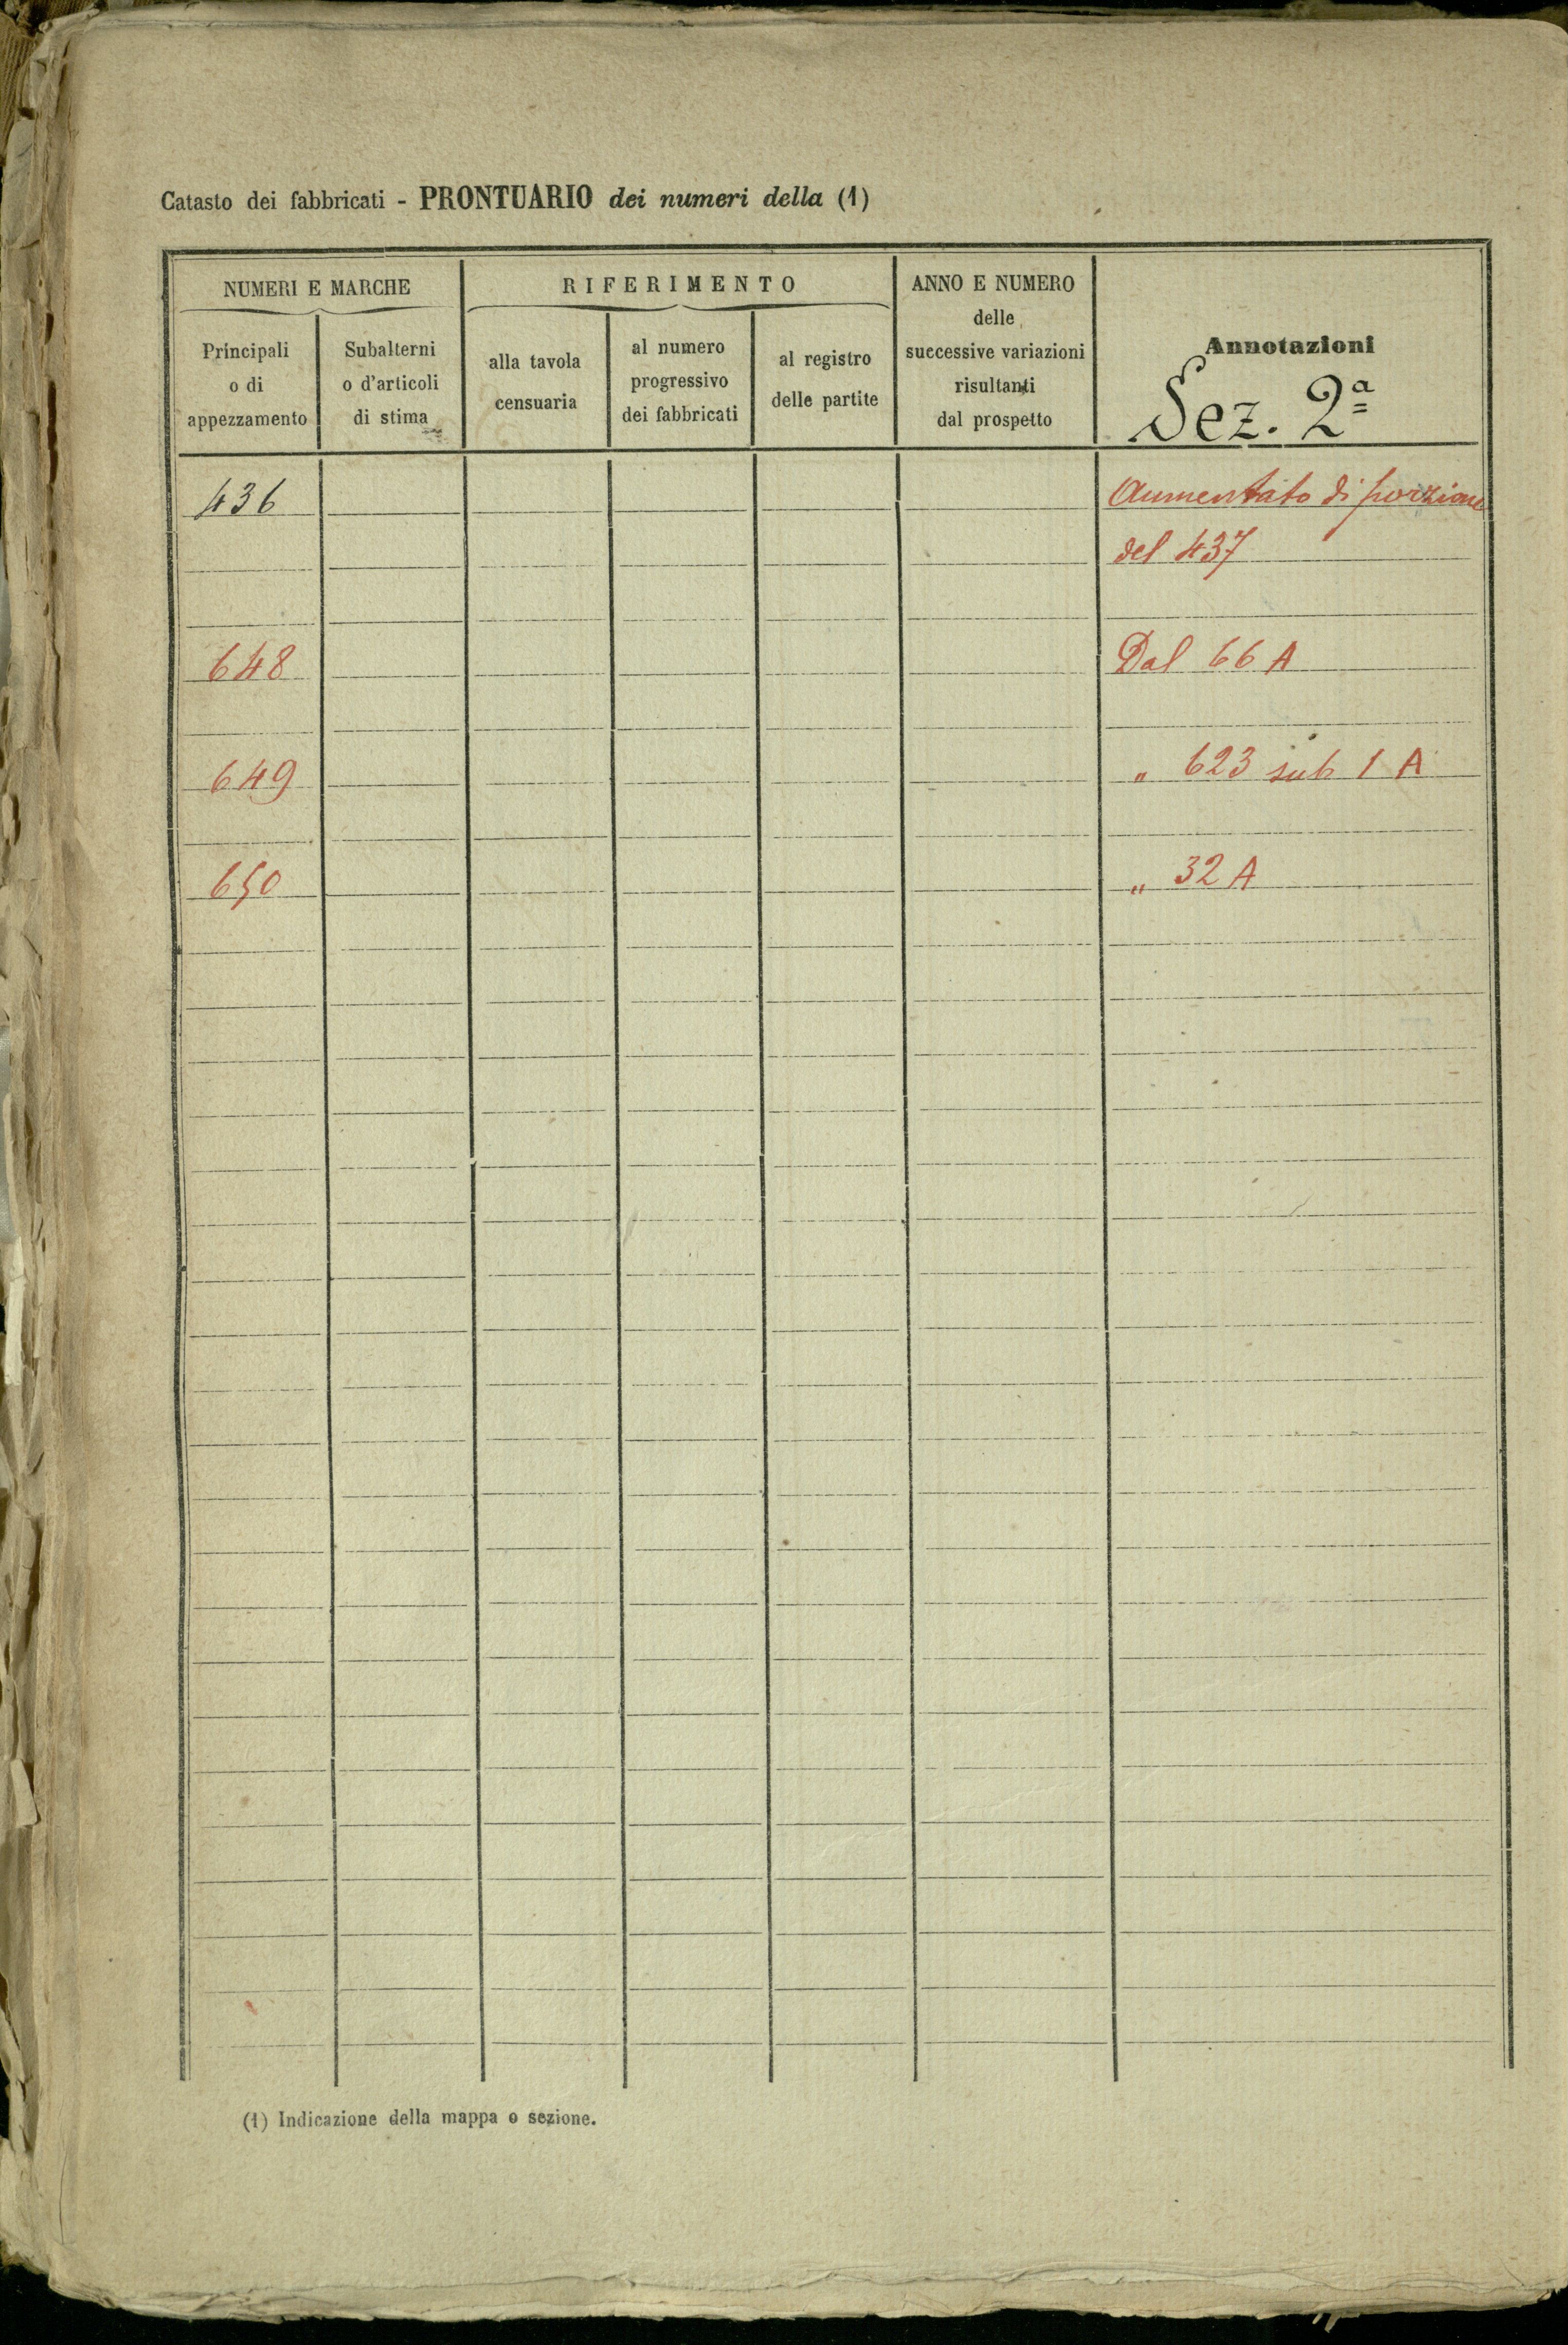 Catasto dei fabbricati - PRONTUARIO dei numeri della (1)
NUMERI E MARCHE
RIFERIMENTO
ANNO E NUMERO
delle
successive variazioni
risultanti
dal prospetto
Annotazioni
Sez. 2ª
Principali
o di
appezzamento
Subalterni
o d'articoli
di stima
alla tavola
censuaria
al numero
progressivo
dei fabbricati
al registro
delle partite
436 Aumentato di porzione
del 437
648 Dal 66 A
649 „ 623 sub 1 A
650 „ 32 A
(1) Indicazione della mappa o sezione.